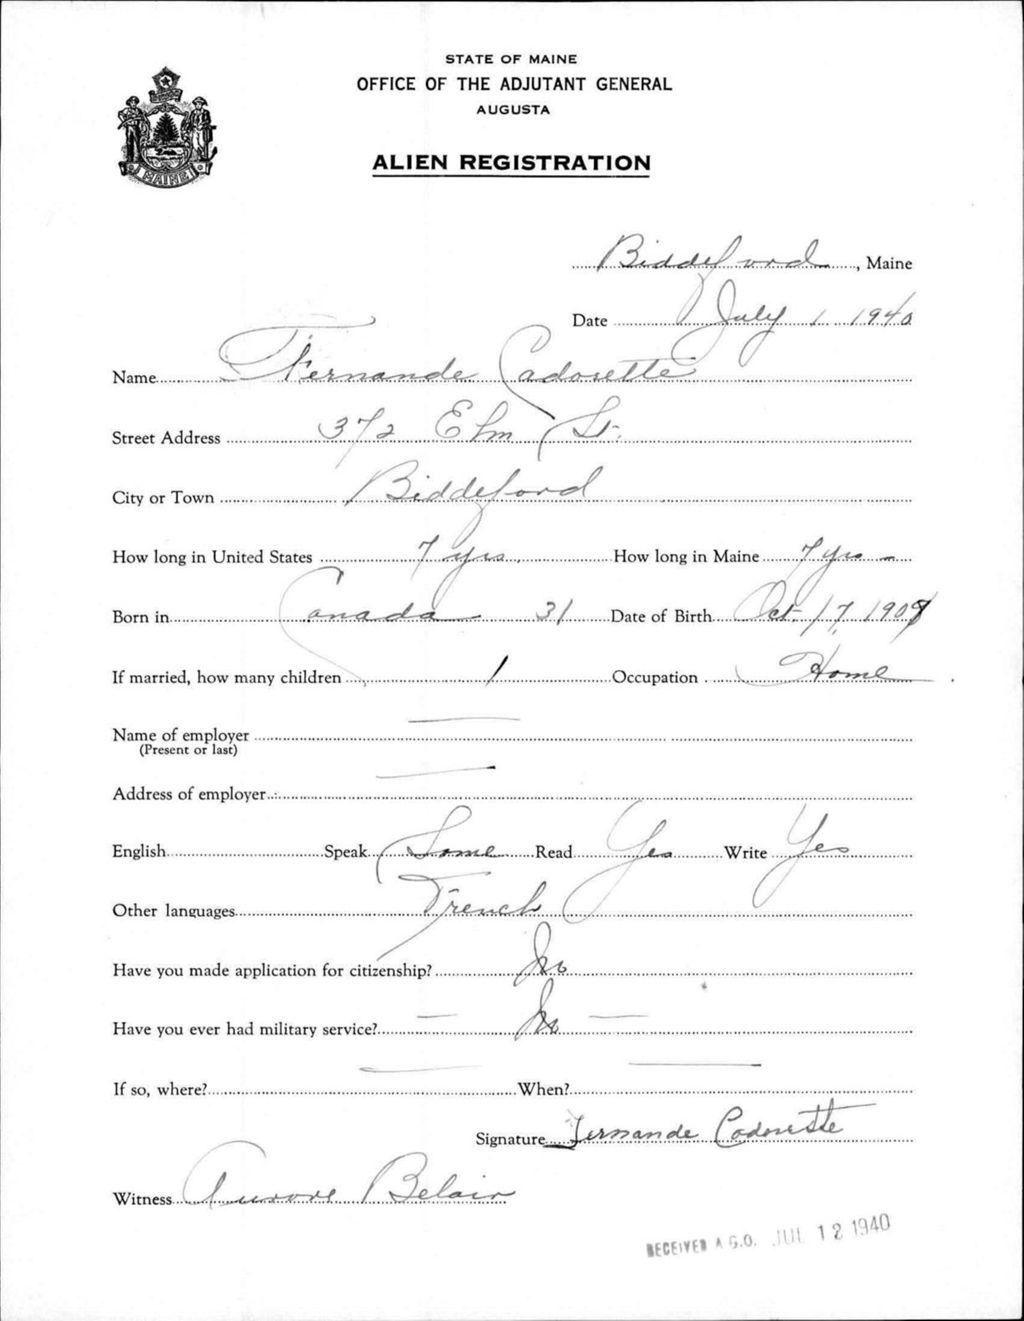 STATE OF MAINE
OFFICE OF THE ADJUTANT GENERAL
AUGUSTA
ALIEN REGISTRATION
MAINE
Biddeford, Maine
Date July 1 1940
Name Fernande Cadorette
Street Address 372 Elm St.
City or Town Biddeford
How long in United States 7 yrs. How long in Maine 7 yrs
Born in Canada 31 Date of Birth Oct. 17, 1908
If married, how many children 1 Occupation Home
Name of employer
(Present or last)
Address of employer
English Speak Some Read Yes Write Yes
Other languages French
Have you made application for citizenship? No
Have you ever had military service? No
If so, where? When?
Signature Fernande Cadorette
Witness Aurore Belair
RECEIVED A.G.O. JUL 12 1940